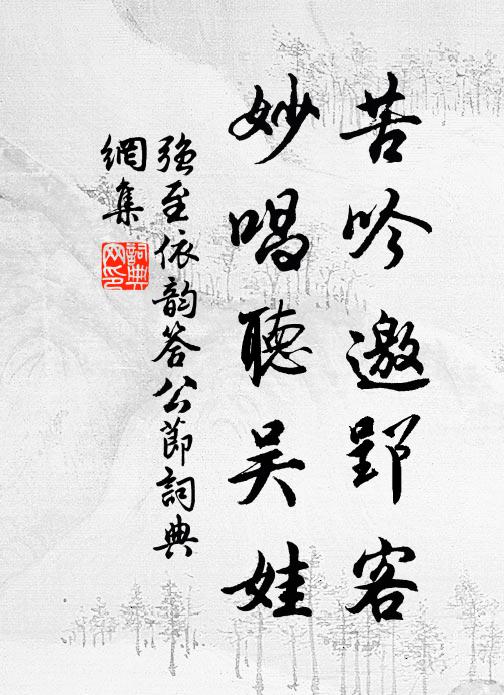 苦吟邀郢客
妙唱聽吴娃
強至依韵答公節詞典
網集
詞典
网印